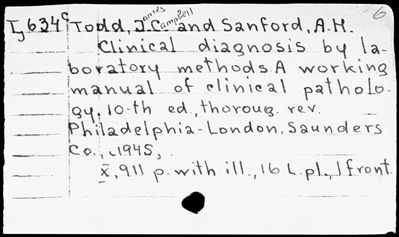 Ij634c Todd, J.ames C.ampbell and Sanford, A.H. 6
Clinical diagnosis by la-
boratory methods. A working
manual of clinical patholo-
gy, 10-th ed., thoroug. rev.
Philadelphia-London, Saunders
Co., c1945,.
x, 911 p. with ill., 16 l. pl., 1 front.